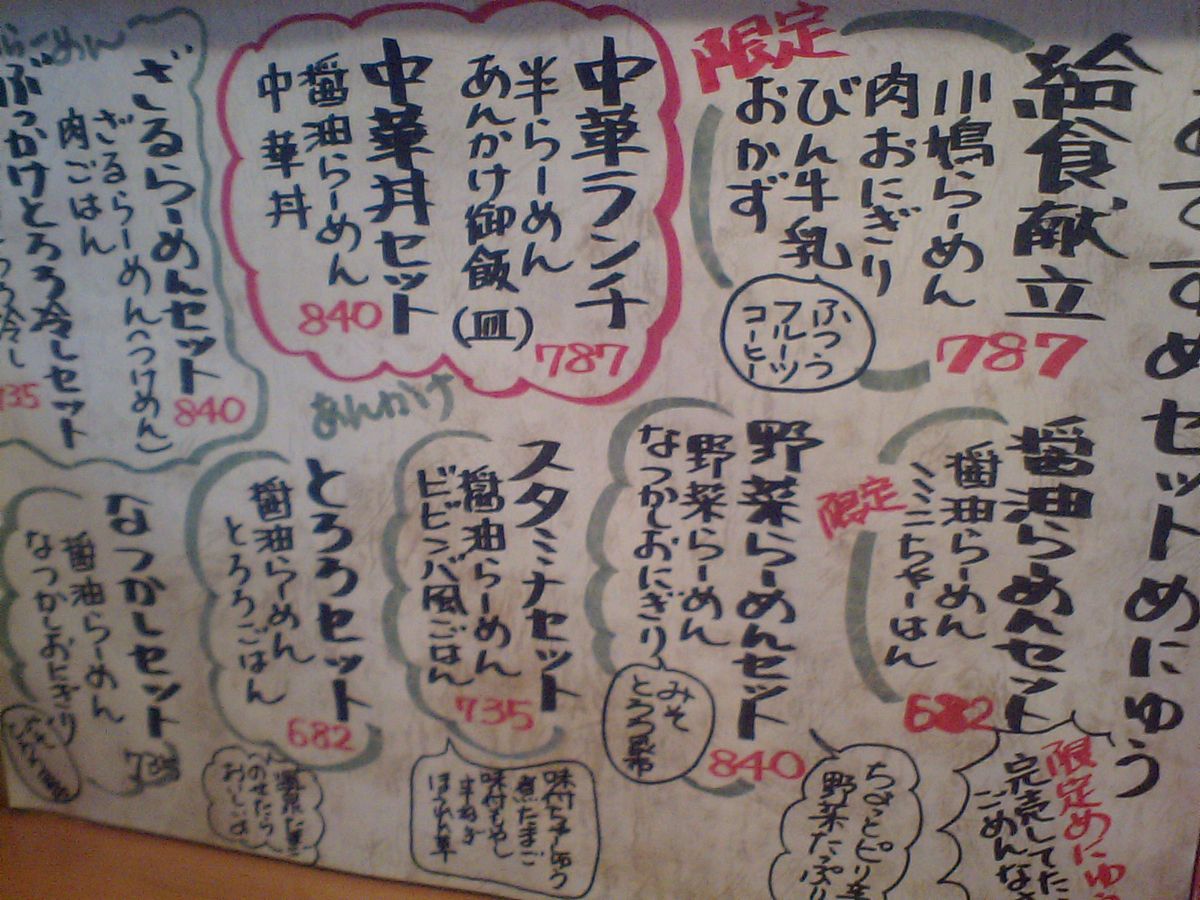 すすめセットめにゅう
給食献立
小鳩らーめん
肉おにぎり
びん牛乳
おかず
限定
ふつう
フルーツ
コーヒー
787
中華ランチ
半らーめん
あんかけ御飯(皿)
787
中華丼セット
醤油らーめん
中華丼
840
あんかけ
ざるらーめんセット
ざるらーめん(つけめん)
肉ごはん
840
ぶっかけとろろ冷しセット
735
醤油らーめんセット
醤油らーめん
ミニちゃーはん
限定
682
野菜らーめんセット
野菜らーめん
なつかしおにぎり
みそ
とろろ昆布
840
スタミナセット
醤油らーめん
ビビンバ風ごはん
735
とろろセット
醤油らーめん
とろろごはん
682
なつかしセット
醤油らーめん
なつかしおにぎり
735
限定めにゅう
完売してた
ごめんなさ
ちょっとピリ辛
野菜たっぷり
煮たまご
味付もやし
ほうれん草